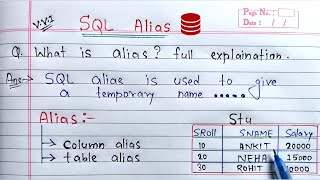 VVI SQL Alias
Page No.
Date: / /
Q. What is alias? full explaination.
Ans:- SQL alias is used to give
a temporary name.....
Alias:- Stu
→ Column alias
→ table alias
SRoll SNAME Salary
10 ANKIT 20000
20 NEHA 15000
30 ROHIT 10000